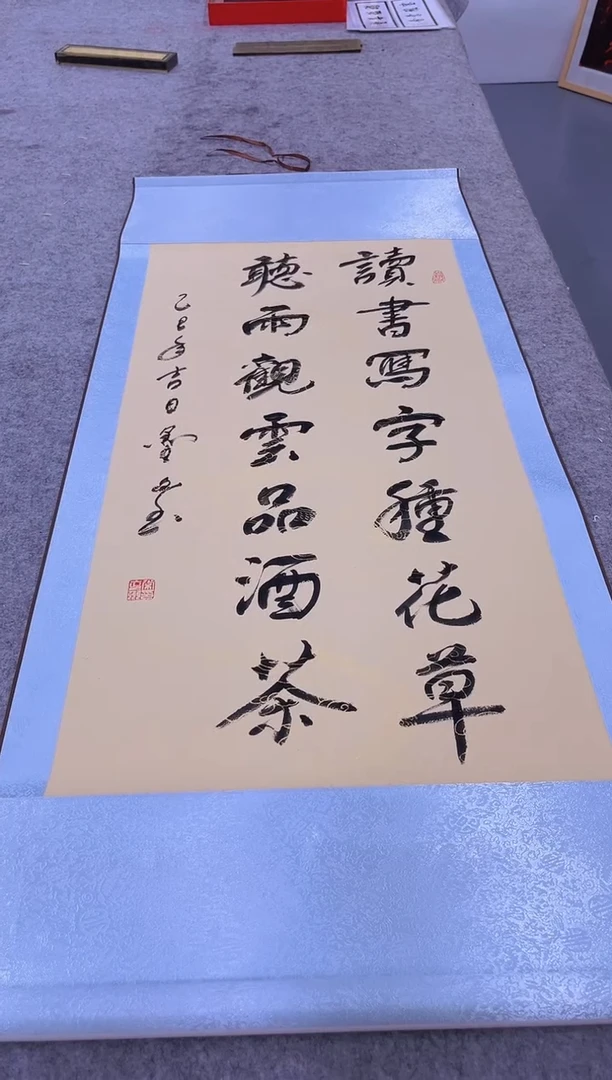 讀書寫字種花草
聽雨觀雲品酒茶
乙巳年吉日墨